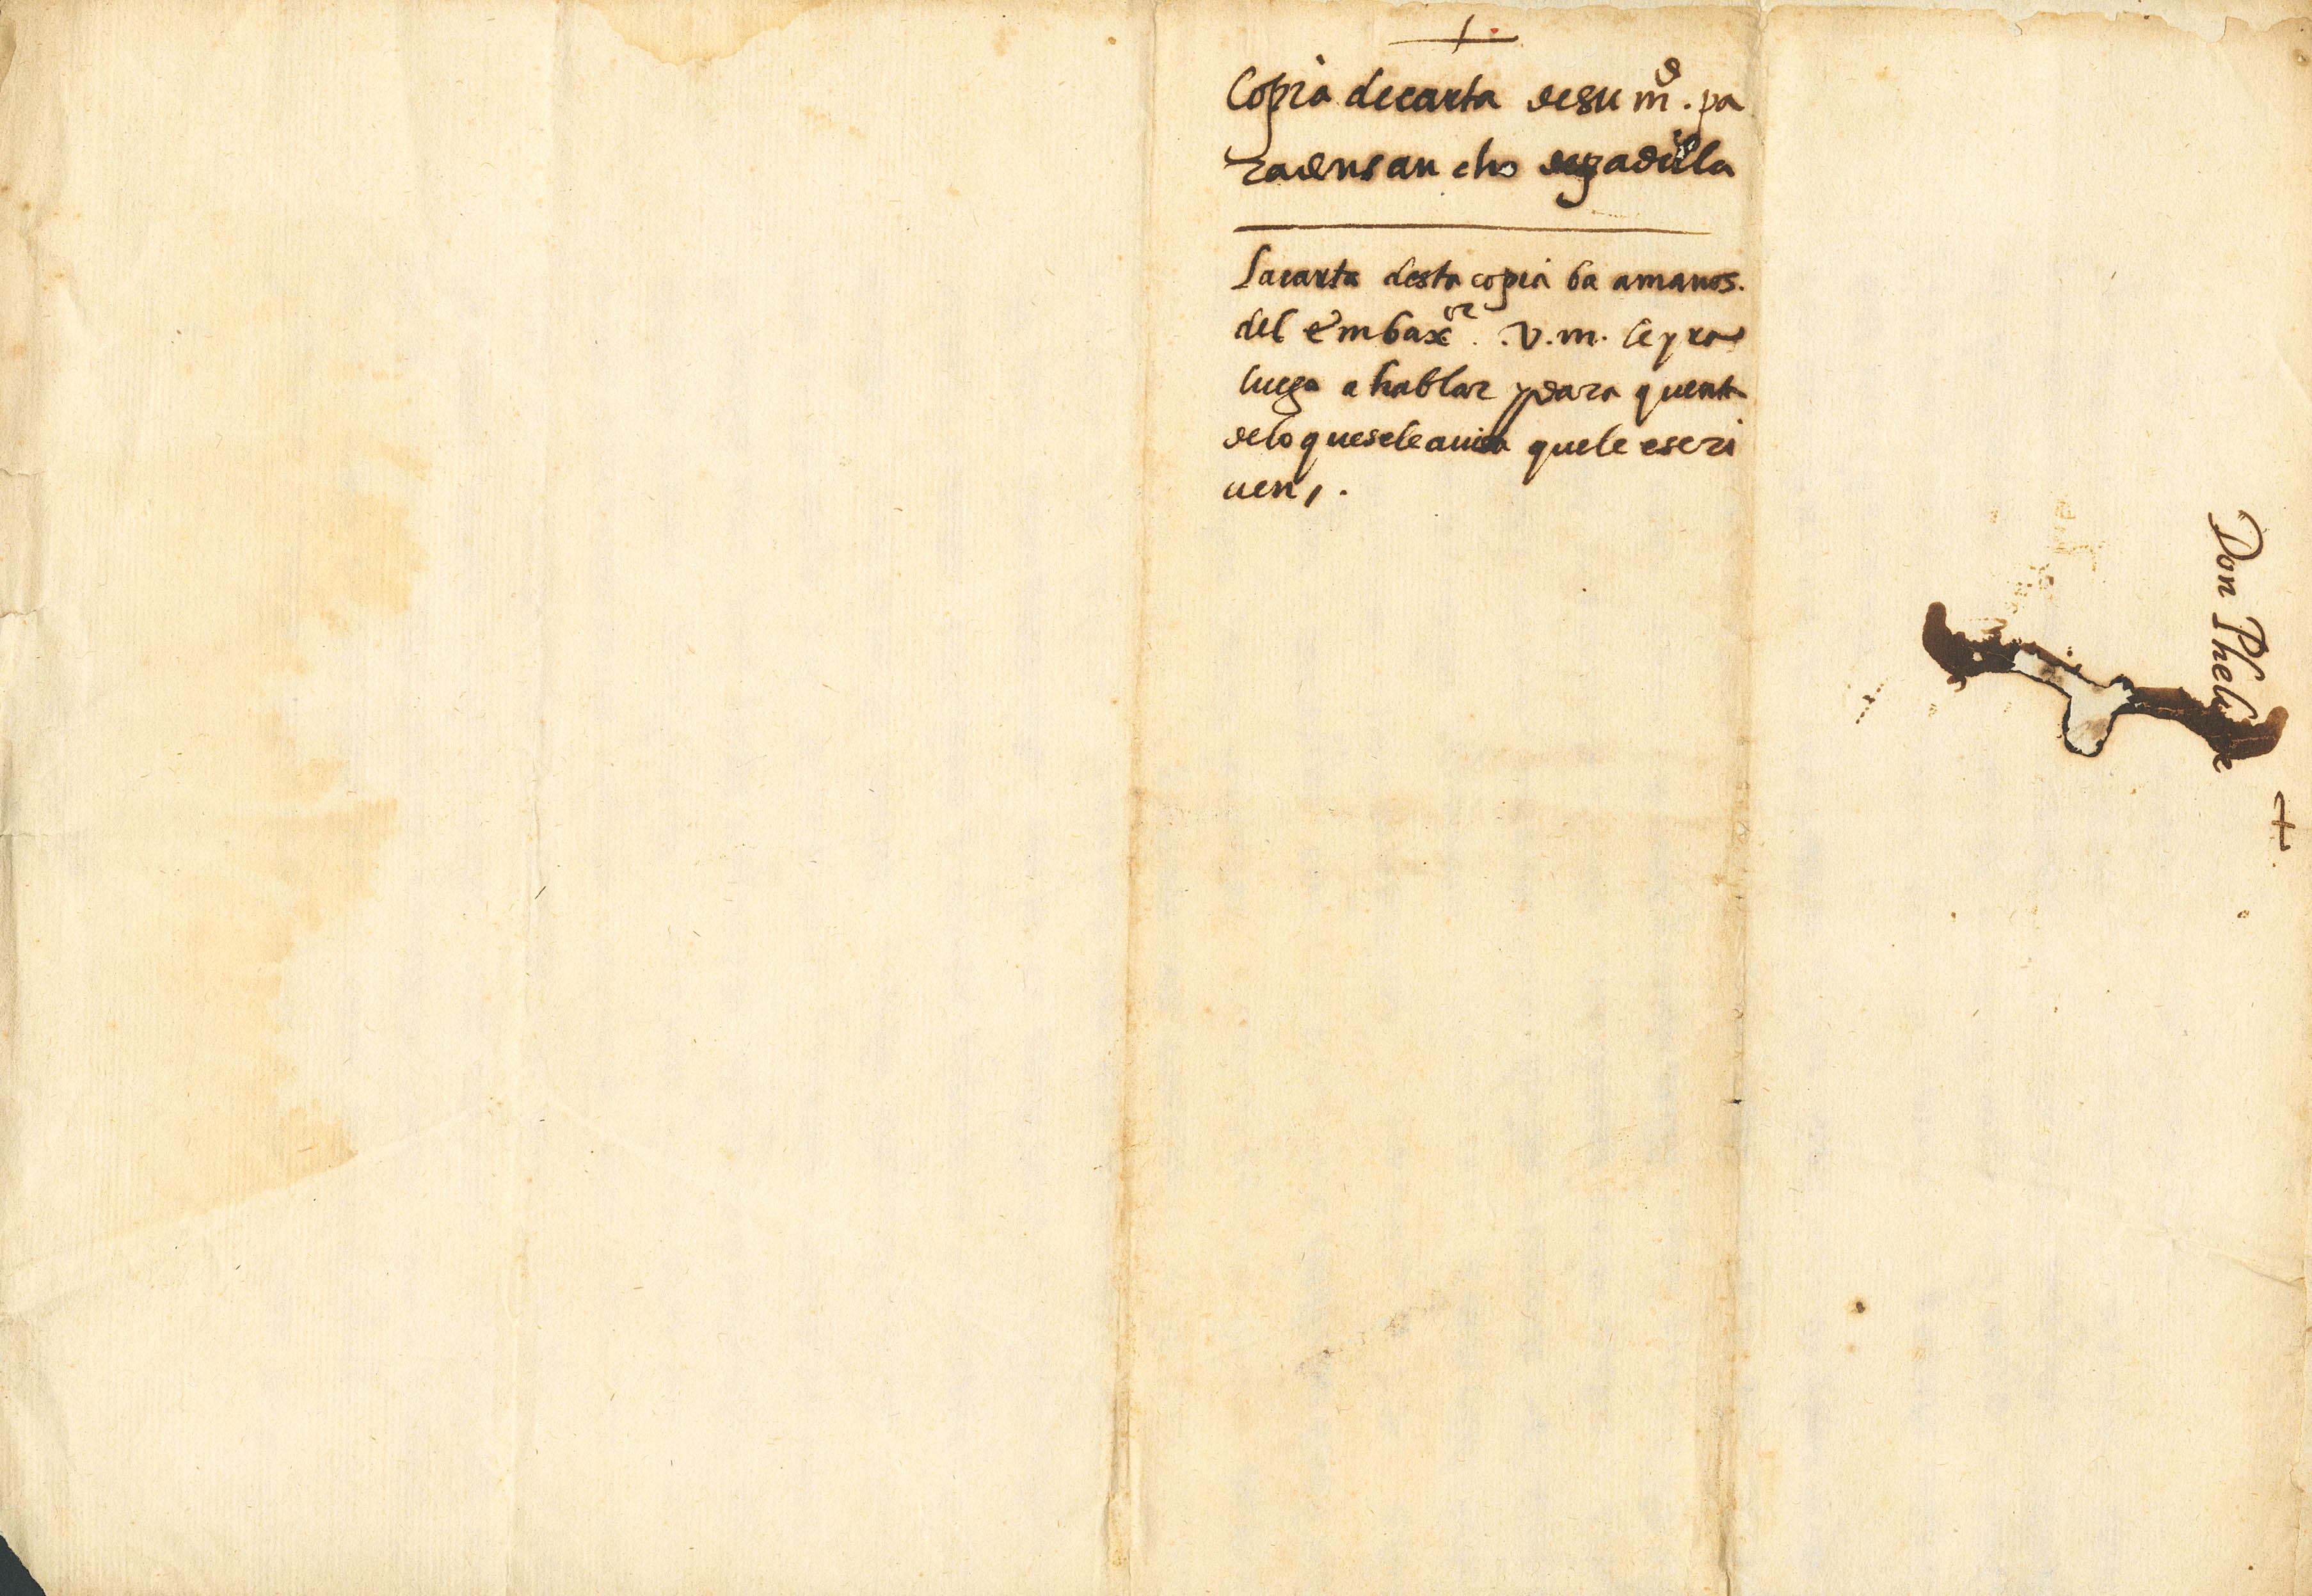 +
Copia de carta de su m.d pa
ra don san cho de padilla
La carta desta copia ba a manos.
del embaxor. v.m. le yra
luego a hablar y dara quenta
de lo que se le avisa que le escri
uen,.
Don Phelipe
+